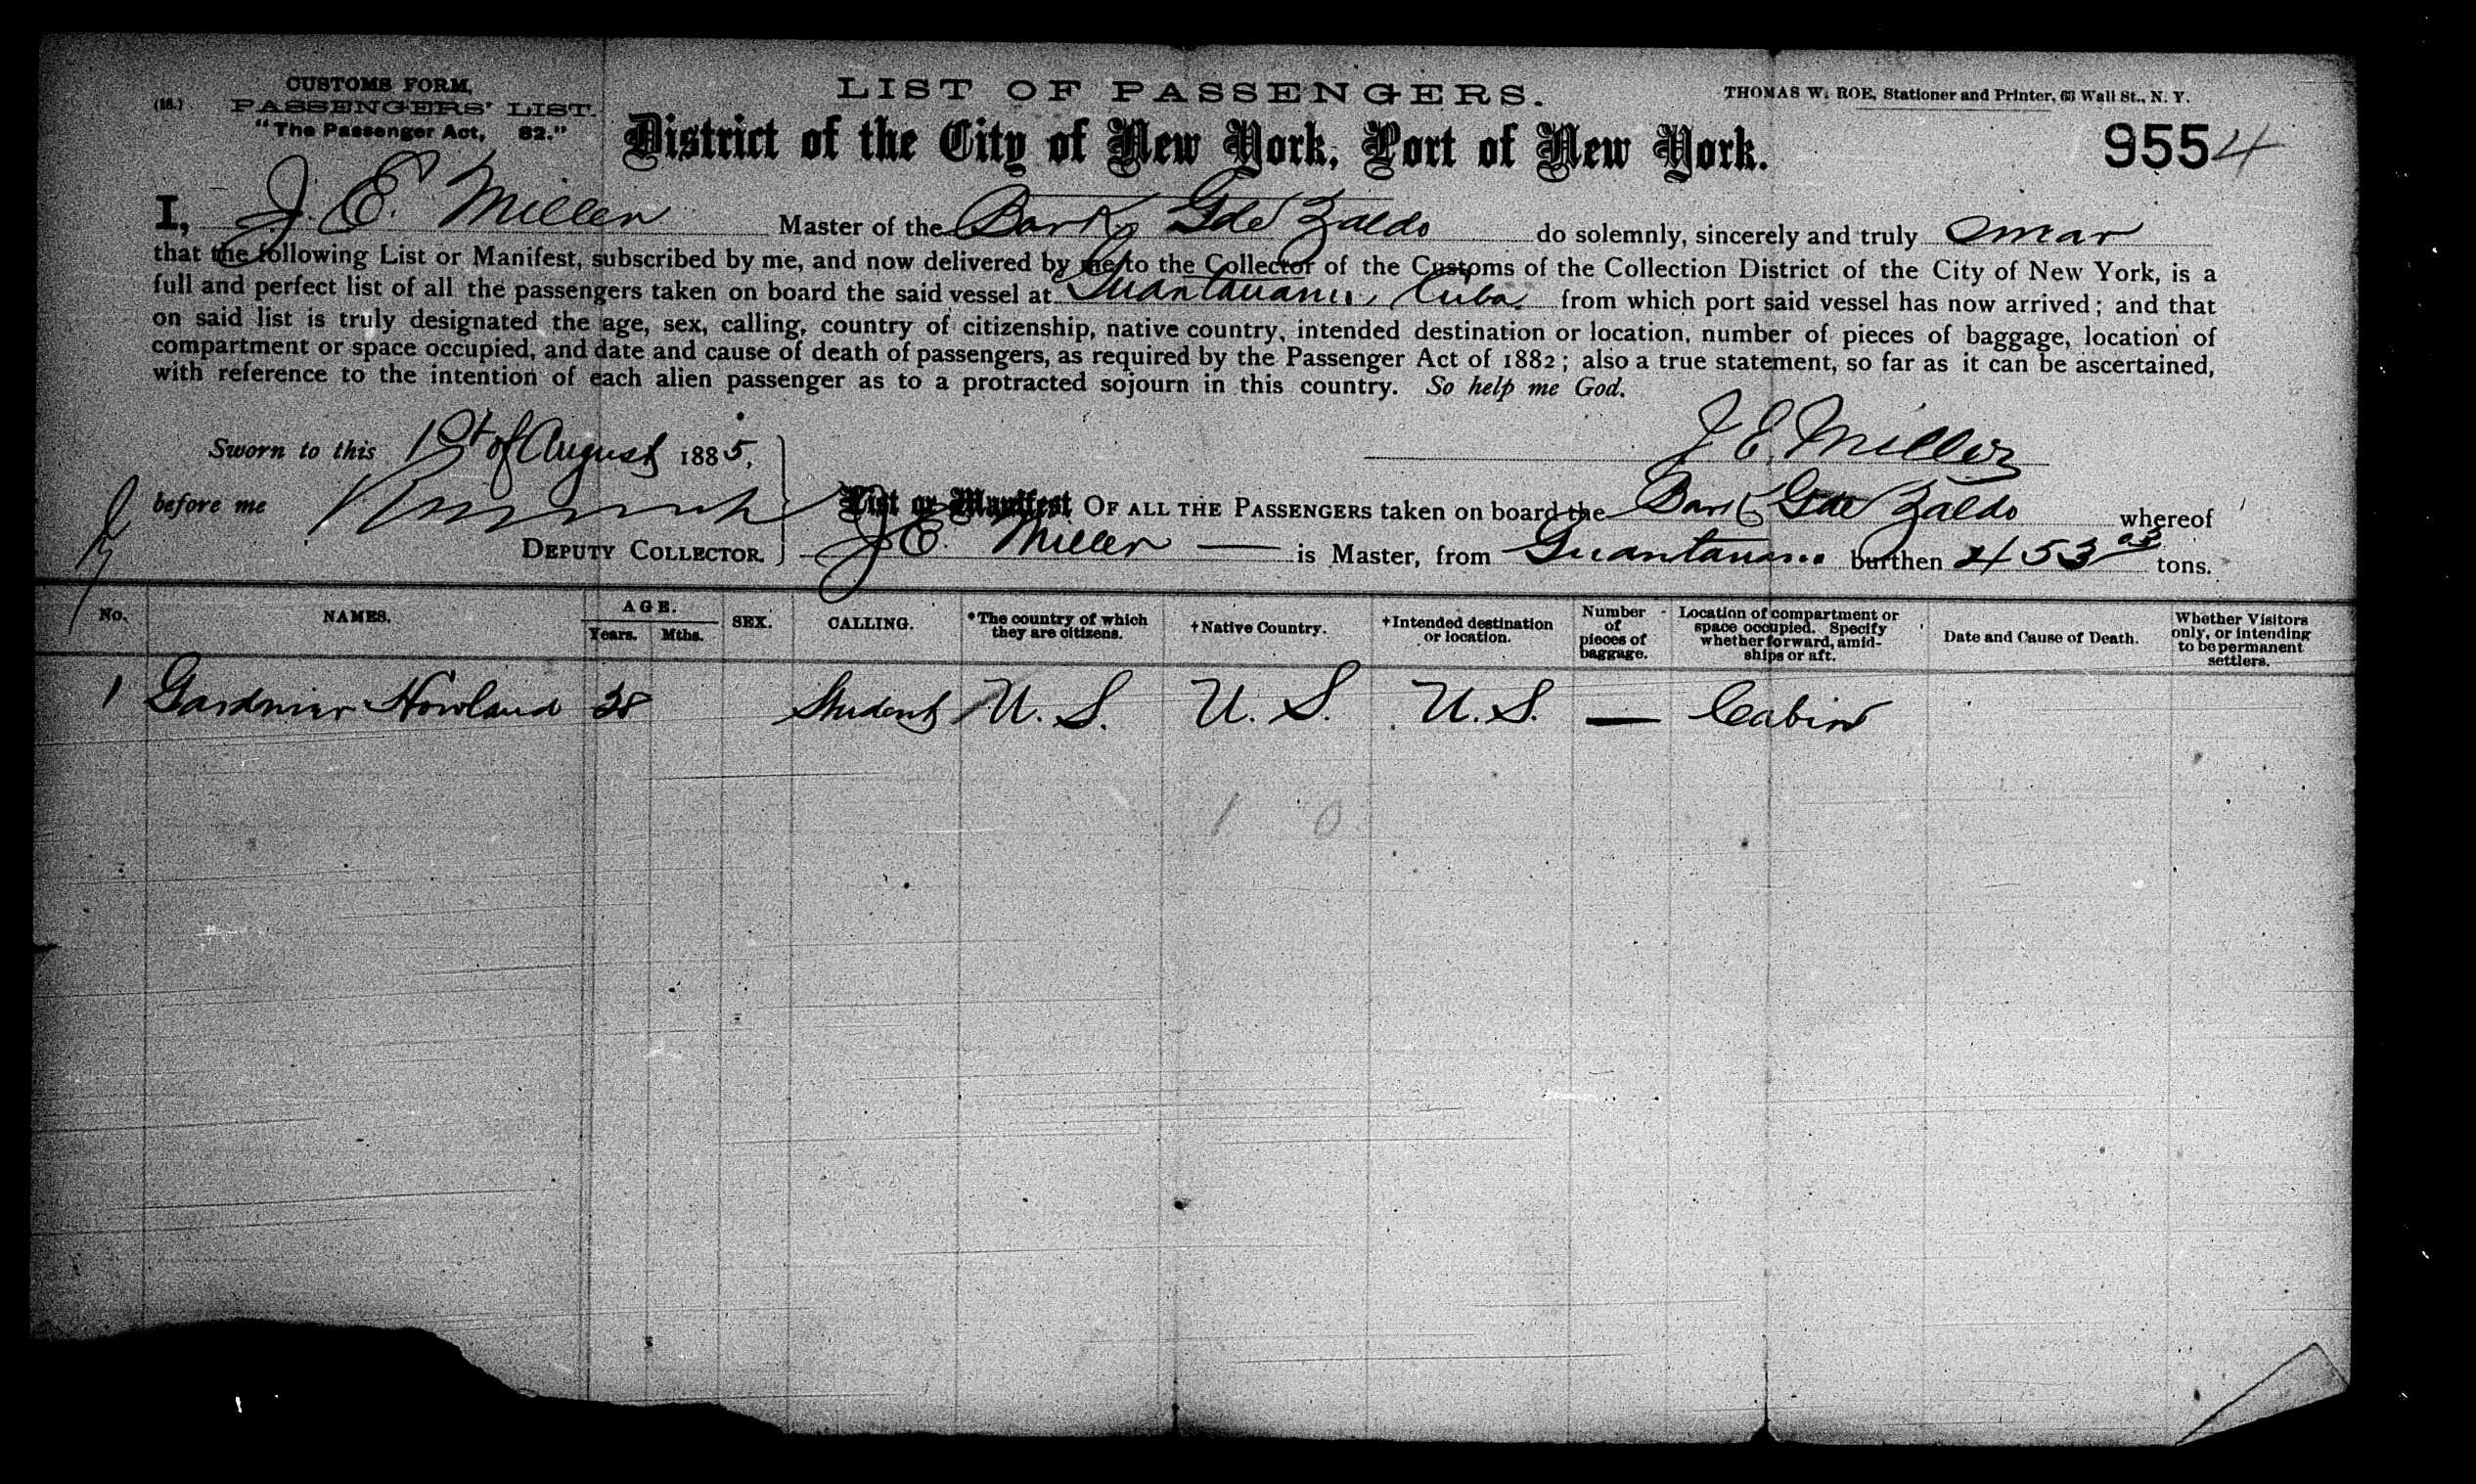 CUSTOMS FORM,
(18.) PASSENGERS' LIST.
"The Passenger Act, 82."
LIST OF PASSENGERS.
THOMAS W. ROE, Stationer and Printer, 63 Wall St., N. Y.
District of the City of New York, Port of New York.
9554
I, J. E. Miller Master of the Bark Gde Zaldo do solemnly, sincerely and truly swear
that the following List or Manifest, subscribed by me, and now delivered by me to the Collector of the Customs of the Collection District of the City of New York, is a
full and perfect list of all the passengers taken on board the said vessel at Guantanamo, Cuba from which port said vessel has now arrived; and that
on said list is truly designated the age, sex, calling, country of citizenship, native country, intended destination or location, number of pieces of baggage, location of
compartment or space occupied, and date and cause of death of passengers, as required by the Passenger Act of 1882; also a true statement, so far as it can be ascertained,
with reference to the intention of each alien passenger as to a protracted sojourn in this country. So help me God.
Sworn to this 1st of August 1885,
J E. Miller
before me
List or Manifest OF ALL THE PASSENGERS taken on board the Bark Gde Zaldo whereof
DEPUTY COLLECTOR.
J E. Miller is Master, from Guantanamo burthen 453 tons.
No. NAMES. AGE. Years. Mths. SEX. CALLING. *The country of which they are citizens. †Native Country. †Intended destination or location. Number of pieces of baggage. Location of compartment or space occupied. Specify whether forward, amidships or aft. Date and Cause of Death. Whether Visitors only, or intending to be permanent settlers.
1 Gardiner Howland 38 Student U. S. U. S. U. S. — Cabin
1 0